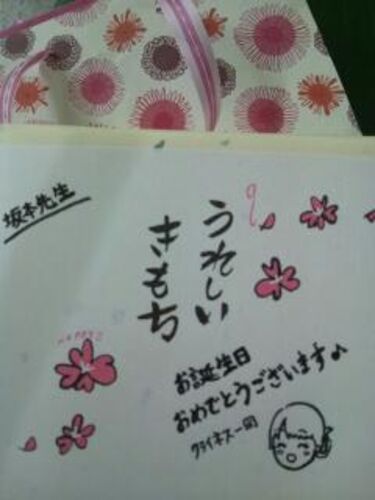 坂本先生
うれしい
きもち
HAPPY
お誕生日
おめでとうございます♪
クライネス一同